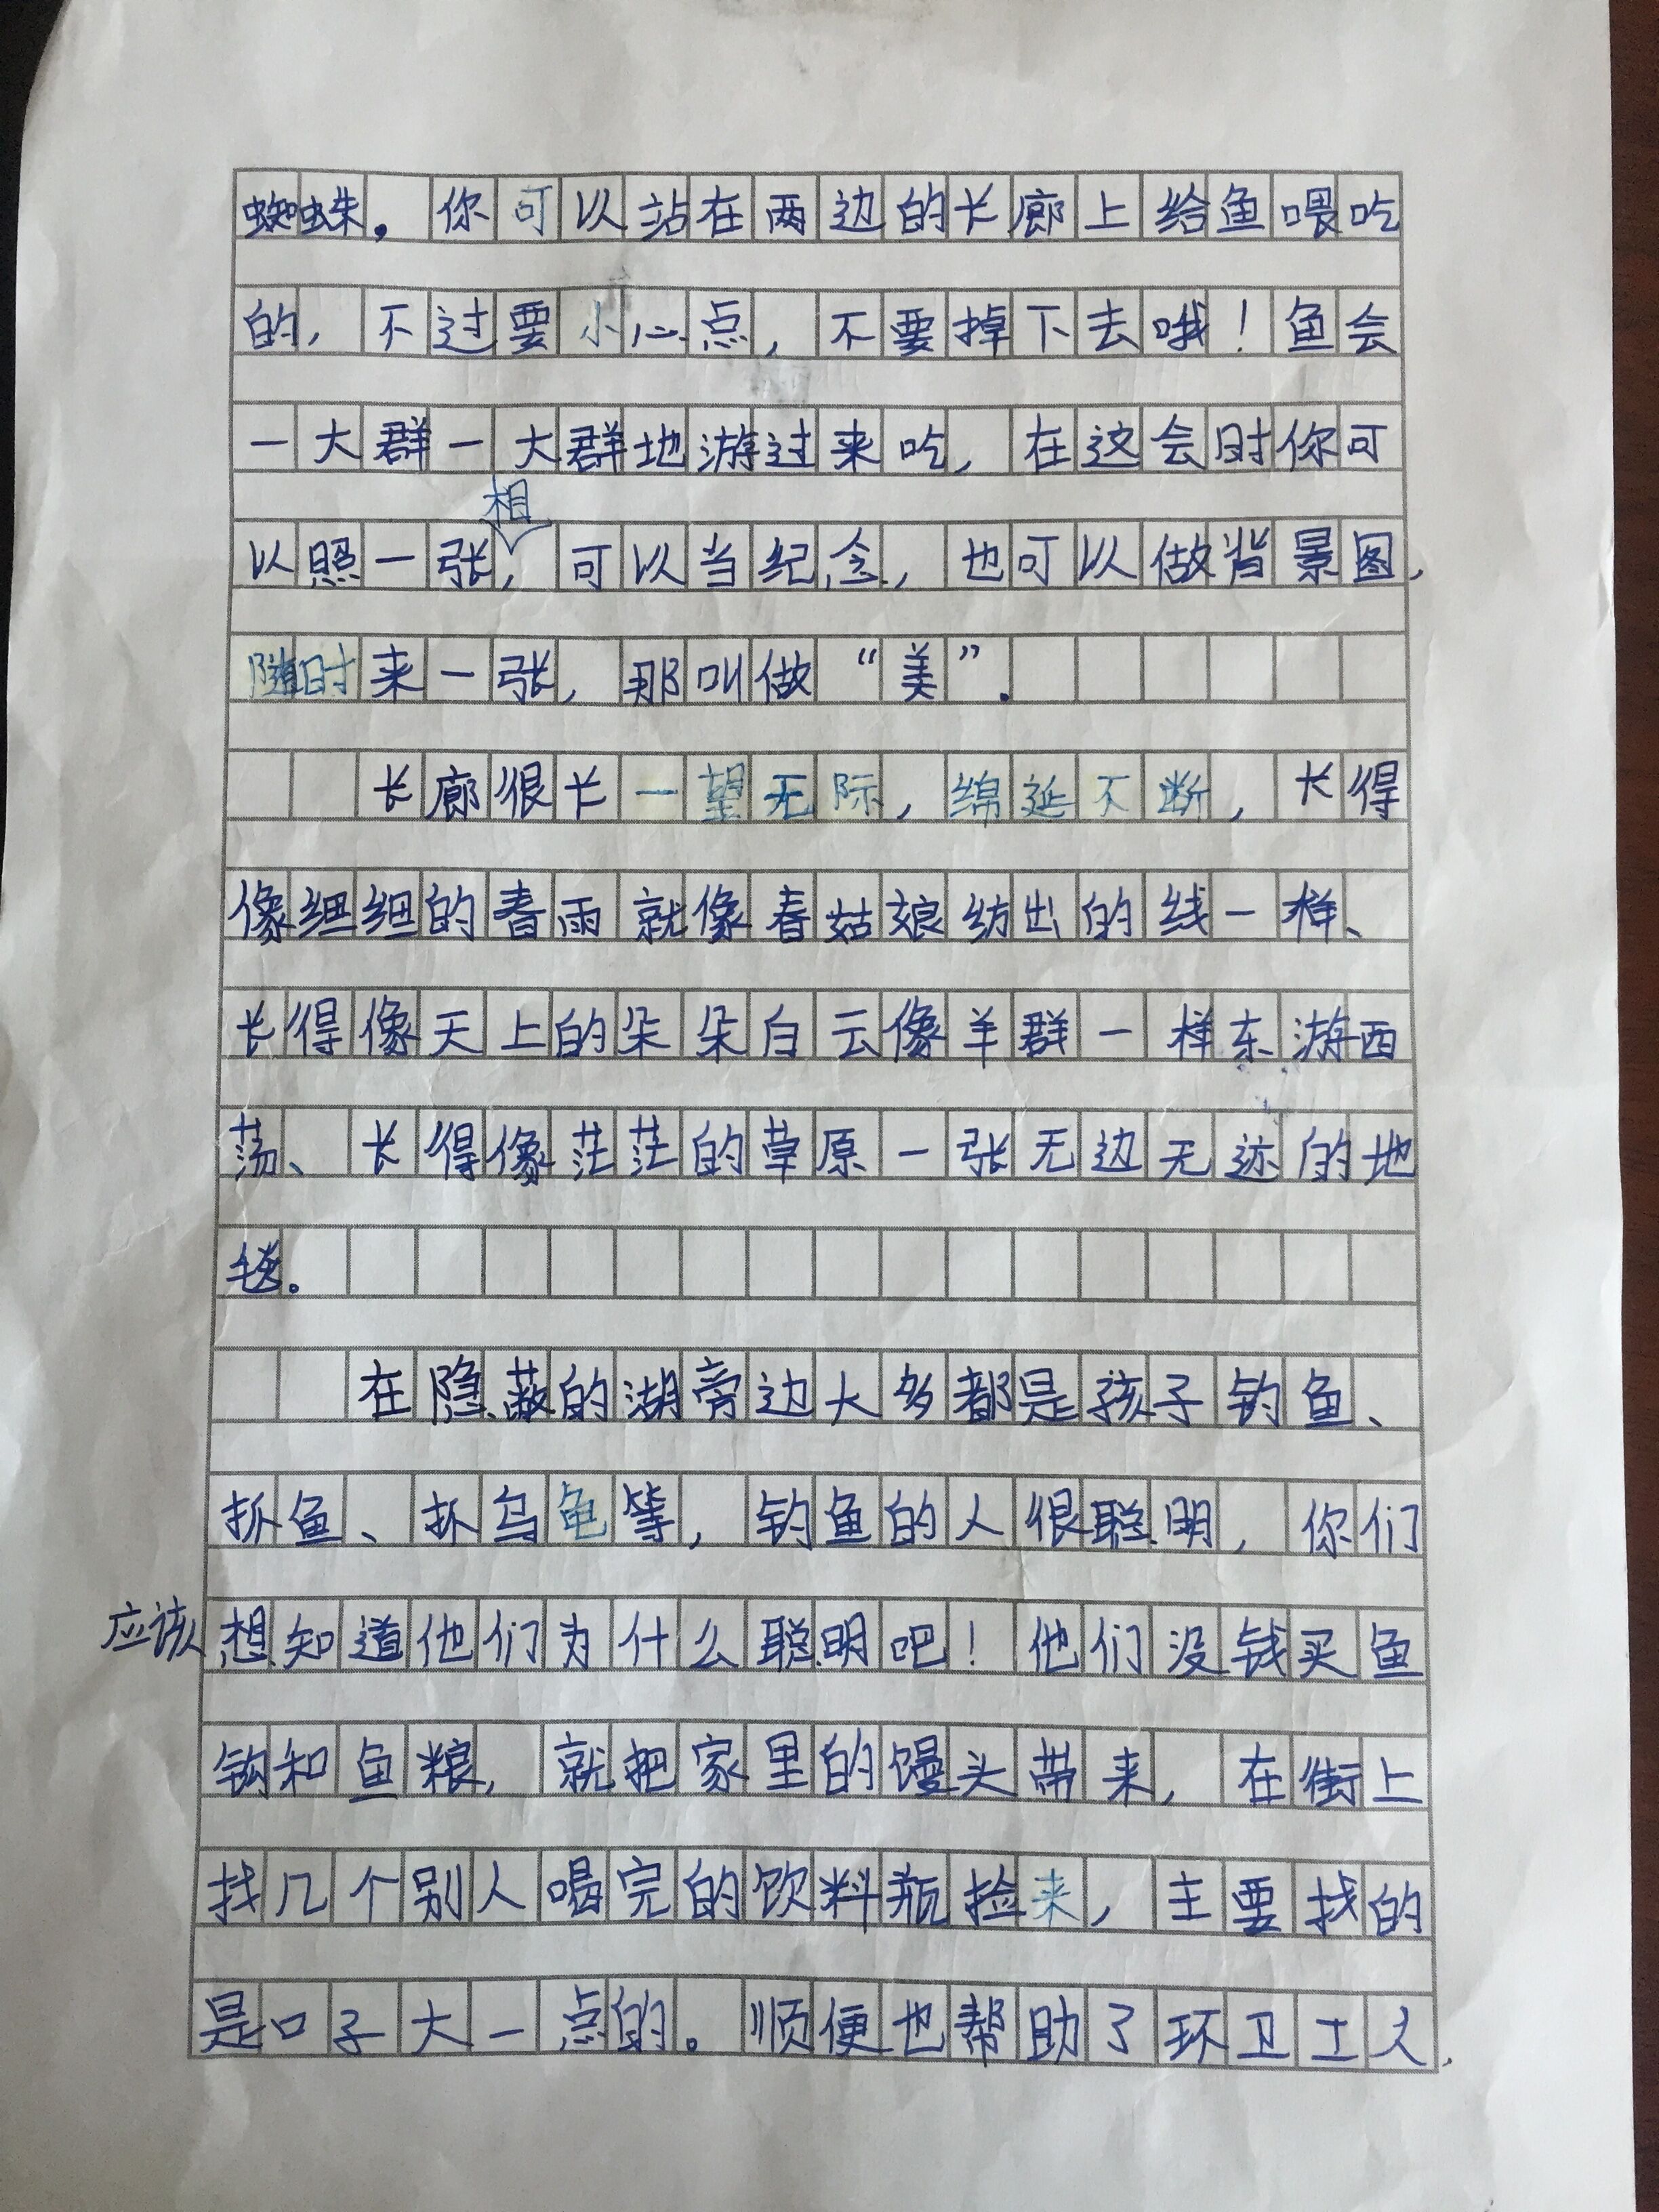 蜘蛛。你可以站在两边的长廊上给鱼喂吃
的，不过要小心点，不要掉下去哦！鱼会
一大群一大群地游过来吃，在这会时你可
以照一张相，可以当纪念，也可以做背景图，
随时来一张，那叫做“美”。
长廊很长一望无际，绵延不断，长得
像细细的春雨就像春姑娘纺出的线一样、
长得像天上的朵朵白云像羊群一样东游西
荡、长得像茫茫的草原一张无边无迹的地
毯。
在隐蔽的湖旁边大多都是孩子钓鱼、
抓鱼、抓乌龟等，钓鱼的人很聪明，你们
应该想知道他们为什么聪明吧！他们没钱买鱼
钩和鱼粮，就把家里的馒头带来，在街上
找几个别人喝完的饮料瓶捡来，主要找的
是口子大一点的。顺便也帮助了环卫工人，